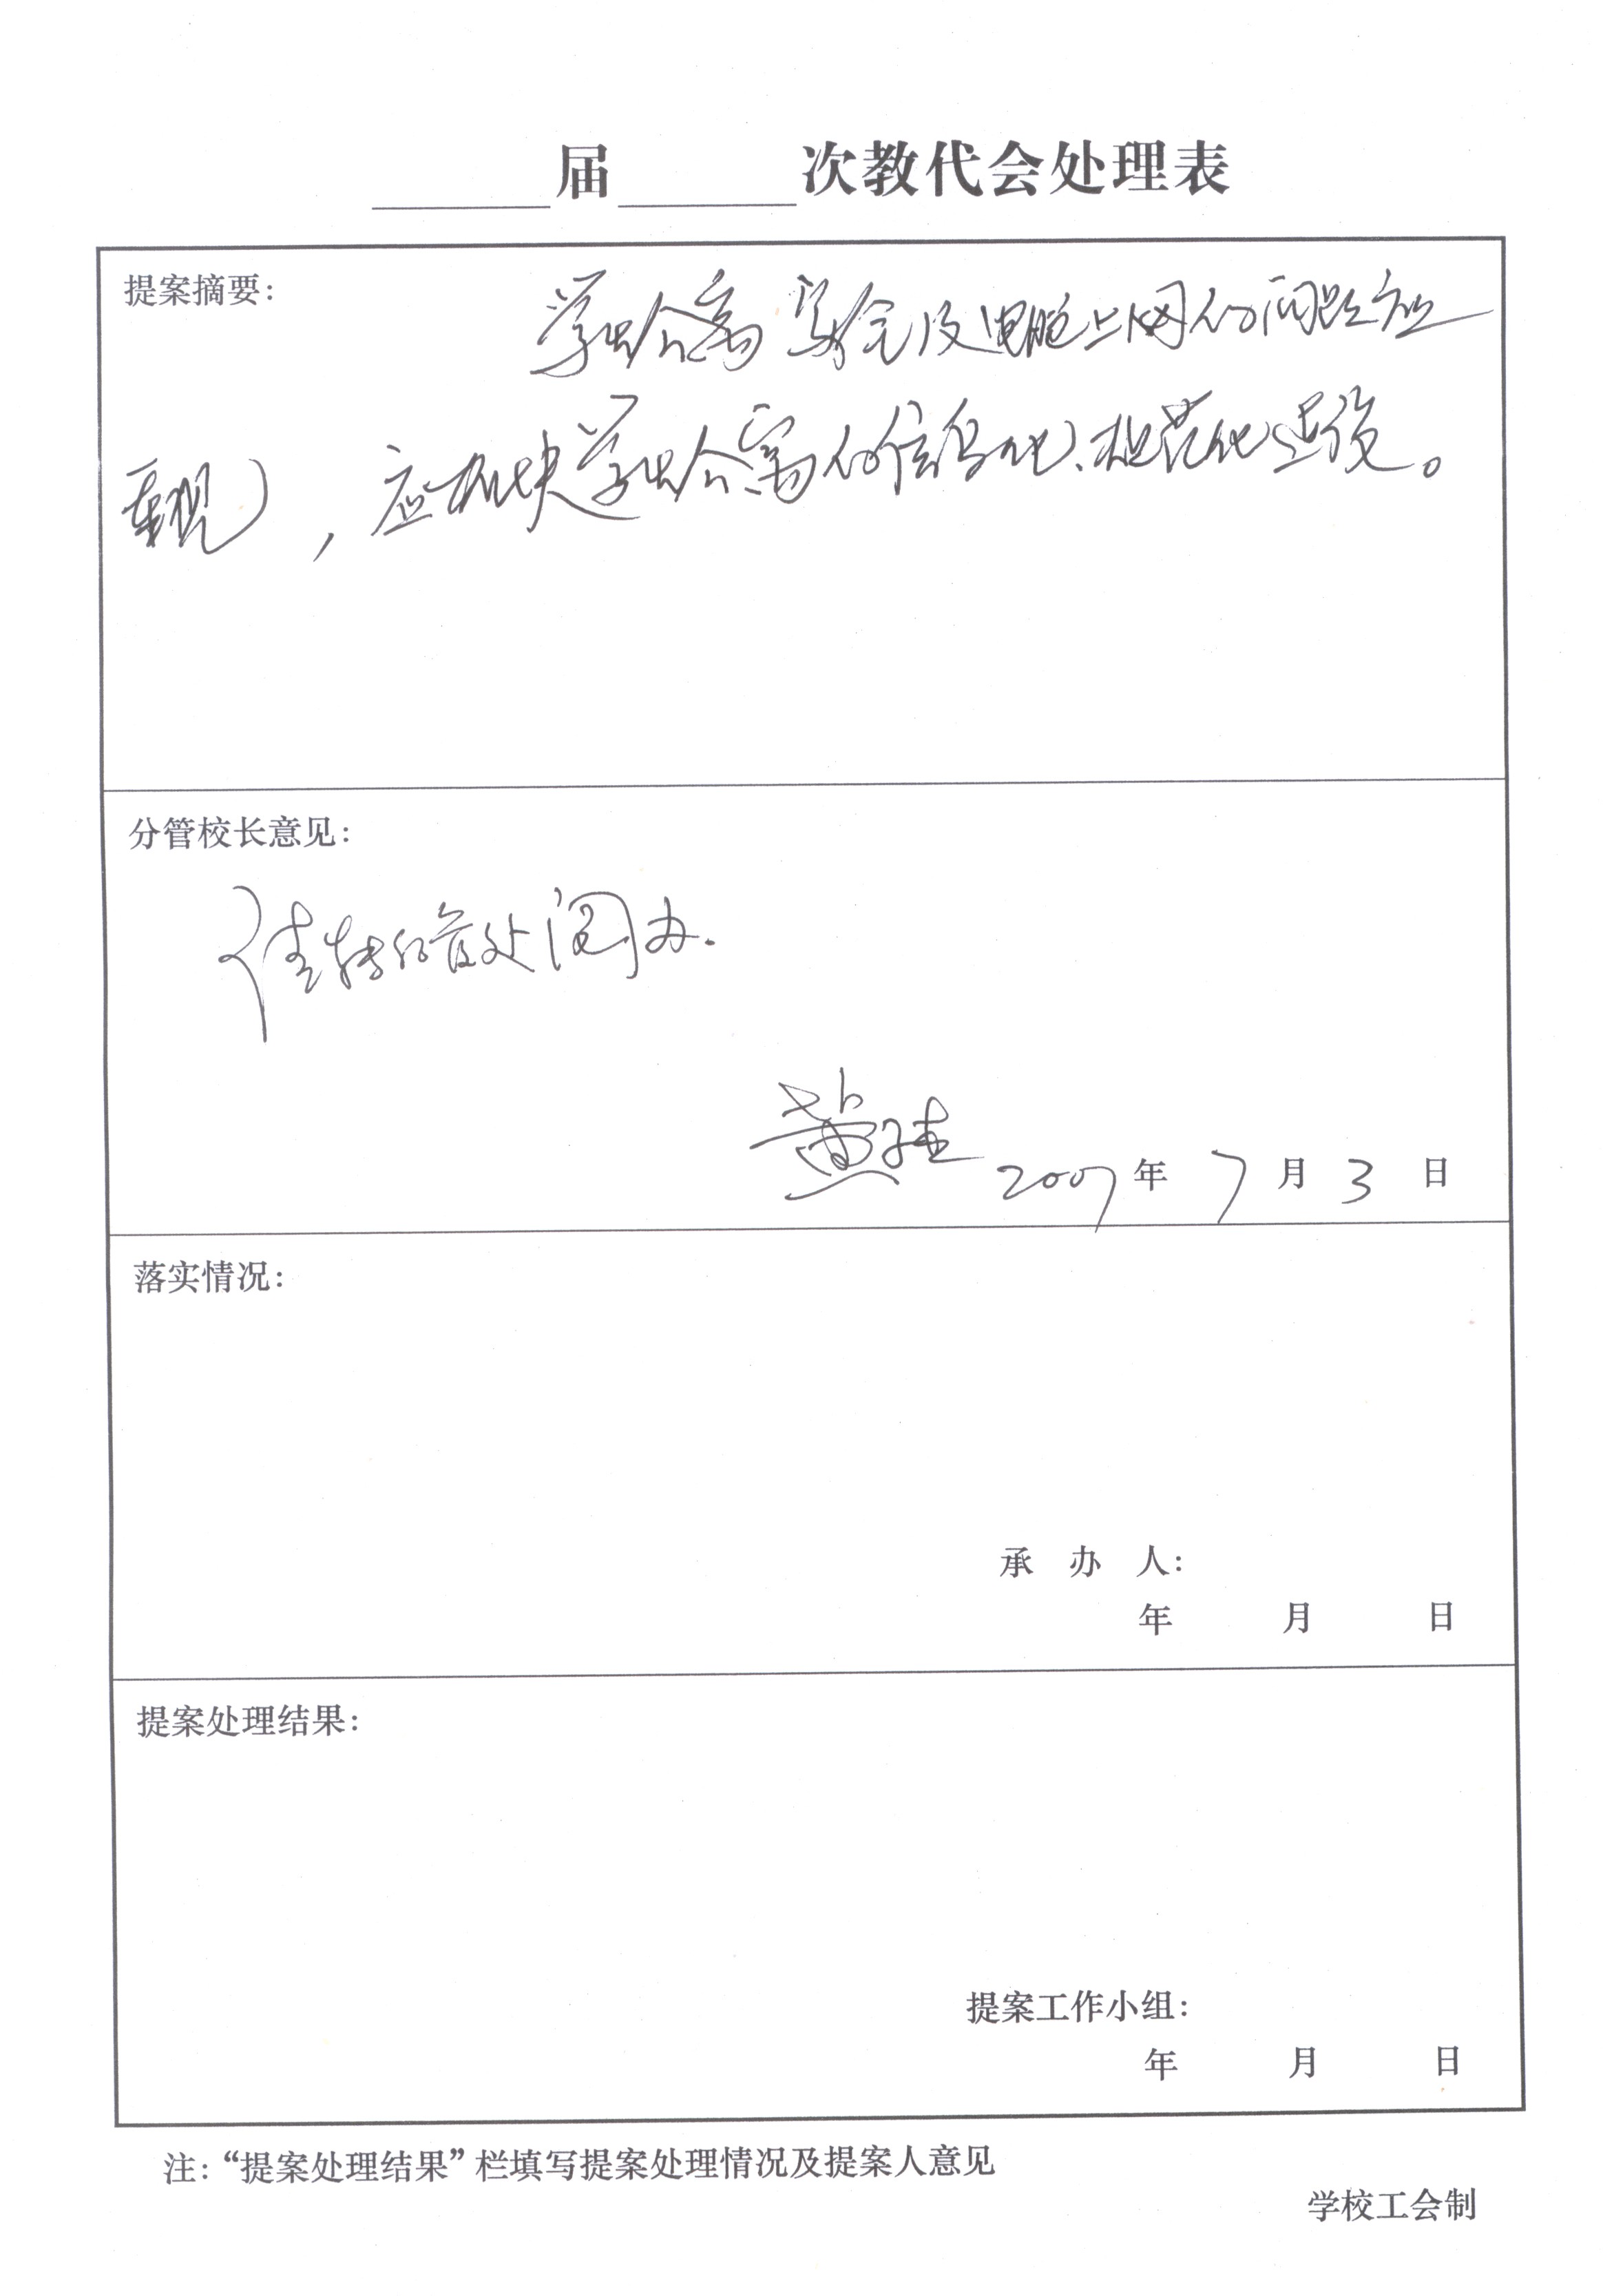 届 次教代会处理表
提案摘要：
学生公寓安全及电脑上网的问题应
重视，应加快学生公寓的信息化、规范化建设。
分管校长意见：
请转后管处阅办.
黄 2007年7月3日
落实情况：
承 办 人：
年 月 日
提案处理结果：
提案工作小组：
年 月 日
注：“提案处理结果”栏填写提案处理情况及提案人意见
学校工会制